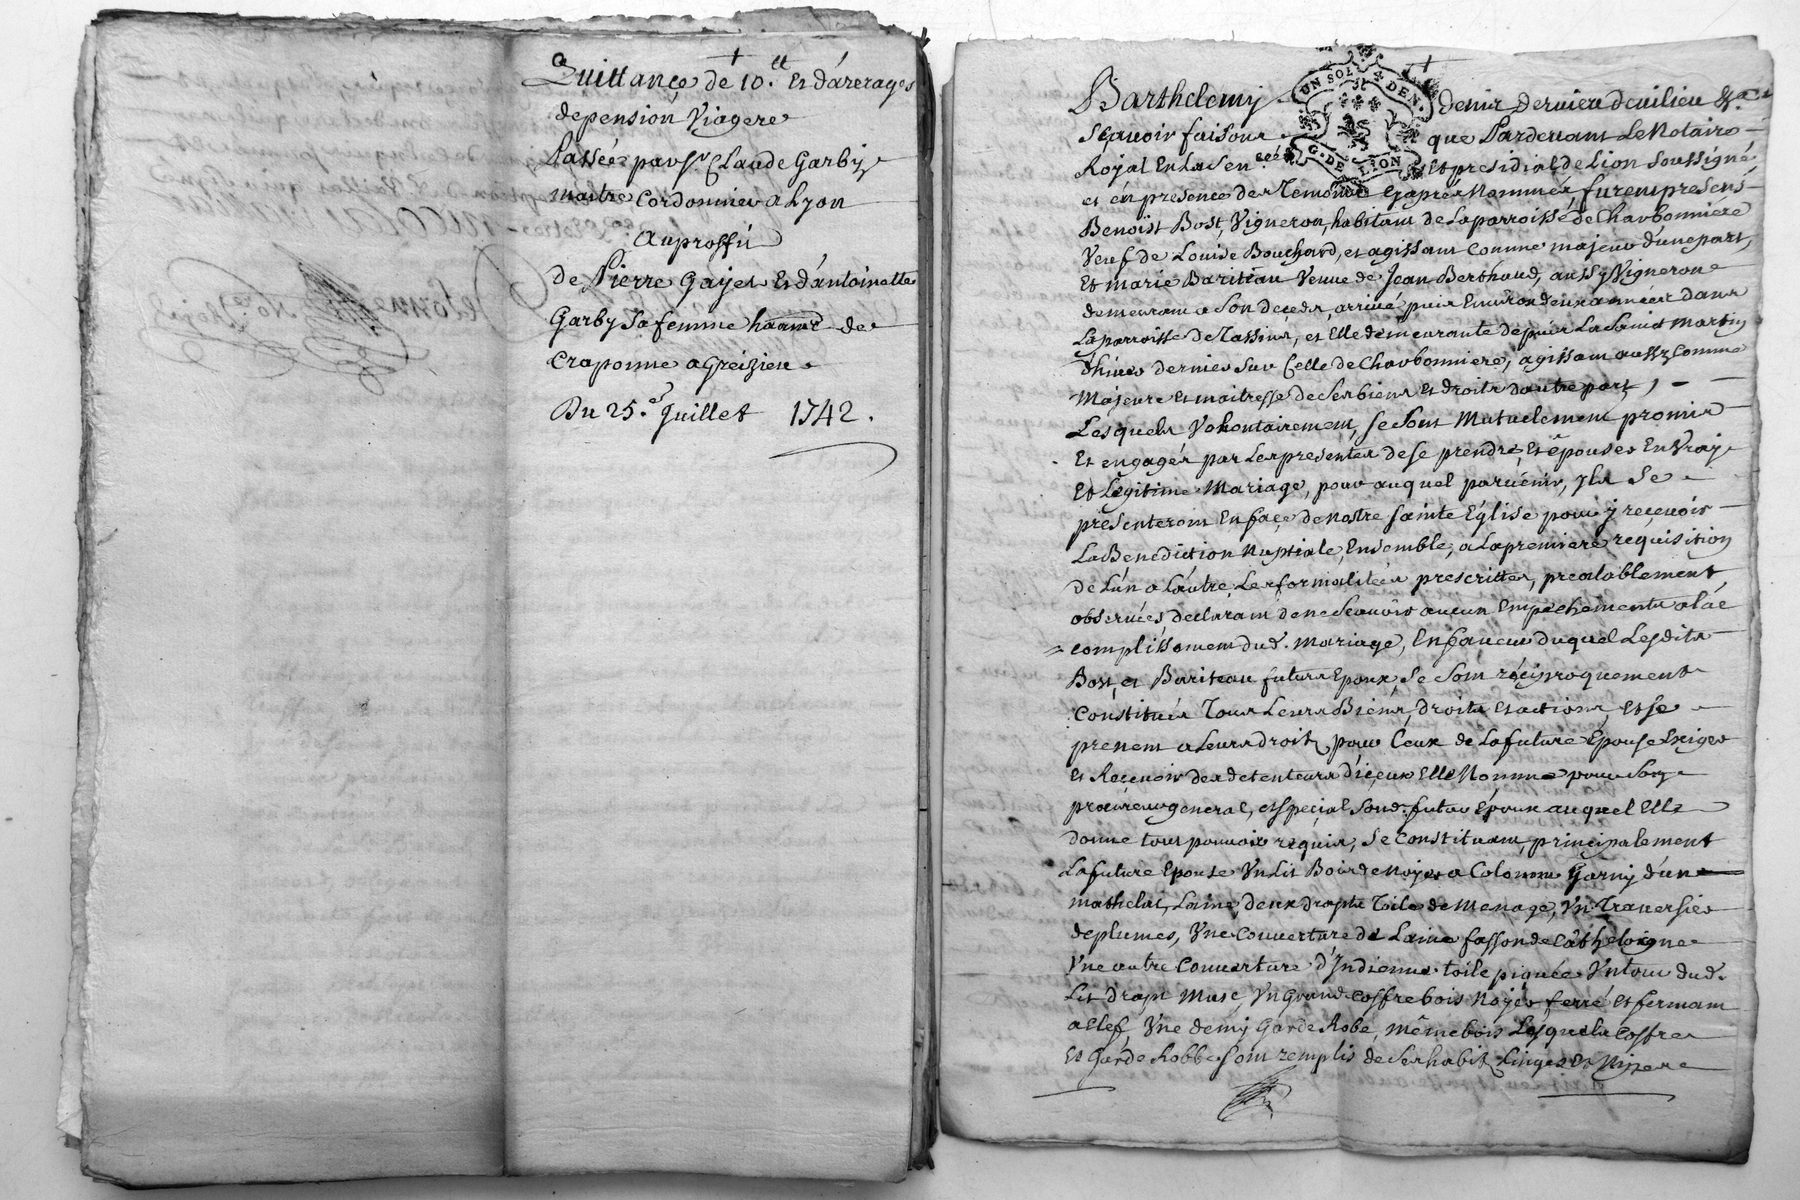 Quittance de 10.tt Et dárerages
de pension Viagere
Passée par Sr. Claude Garby
maitre Cordonnier a Lyon
Au proffit
de Pierre Gayet Et d'antoinette
Garby Sa femme habt. de
Craponne a Greizieu
Du 25.e Juillet 1742.
Barthelemy denis dervieu de vilieu &a.
UN SOL 4 DEN.
G. DE LION
Scavoir faisons que Pardevant Le Notaire
Royal En La Sen.ceé Et presidial de Lion Soussigné
et en presence des Temoins Cy apres Nommés, furent presens
Benoist Bost, Vigneron, habitant de La parroisse de Charbonniere
Veuf de Louise Bouchard, et agissant Comme majeur d'une part,
Et marie Bariteau Veuve de Jean Berthaud, aussy Vigneron
demeurant a Son deceds, arrivé puis Environ deux années dans
La parroisse de Tassins, et Elle demeurante depuis La Saint Martin
d'hiver dernier Sur Celle de Charbonniere, agissant aussy Comme
Majeure Et maitresse de Ses biens Et droits d'autre part,
Lesquels Volontairement, se Sont Mutuelement promis
Et engagés par Les presentes de se prendre, Et épouser En Vray
Et Legitime Mariage, pour auquel parvenir, Ils Se
presenteront En face de Nostre Sainte Eglise pour y recevoir
La Benediction Nuptiale, Ensemble, a La premiere requisition
de L'un a L'autre, Les formalitées prescrittes, prealablement
observées, declarant de ne Scavoir aucun Empechements a l'ac
= complissement dud. Mariage, En faveur duquel Lesdits
Bost, et Bariteau futurs Epoux Se Sont réciproquement
Constitués Tous Leurs Biens, droits Et actions, Et se
prenent a Leurs droits, pour Ceux de La future Epouse Exiger
Et Recevoir des detenteurs d'iceux Elle Nomme pour Son
procureur general, et special Sond. futur Epoux auquel Elle
donne tous pouvoir requis, Se Constituant, principalement
La future Epouse Un Lit Bois de Noyer a Colonne Garny d'un
mathelat, Laine, deux draps Toile de Menage, Un Traversier
de plumes, Une Couverture de Laine fasson de Catheloigne
Une autre Couverture d'Indienne toile piquée Un tour dud.
Lit drap Musc, Un Grand Coffre bois Noyer ferré et fermant
a Clef, Une demy Garde Robe, même bois Lesquels Coffre
Et Garde Robbe Sont remplis de Ses habits, Linges Et Nippes